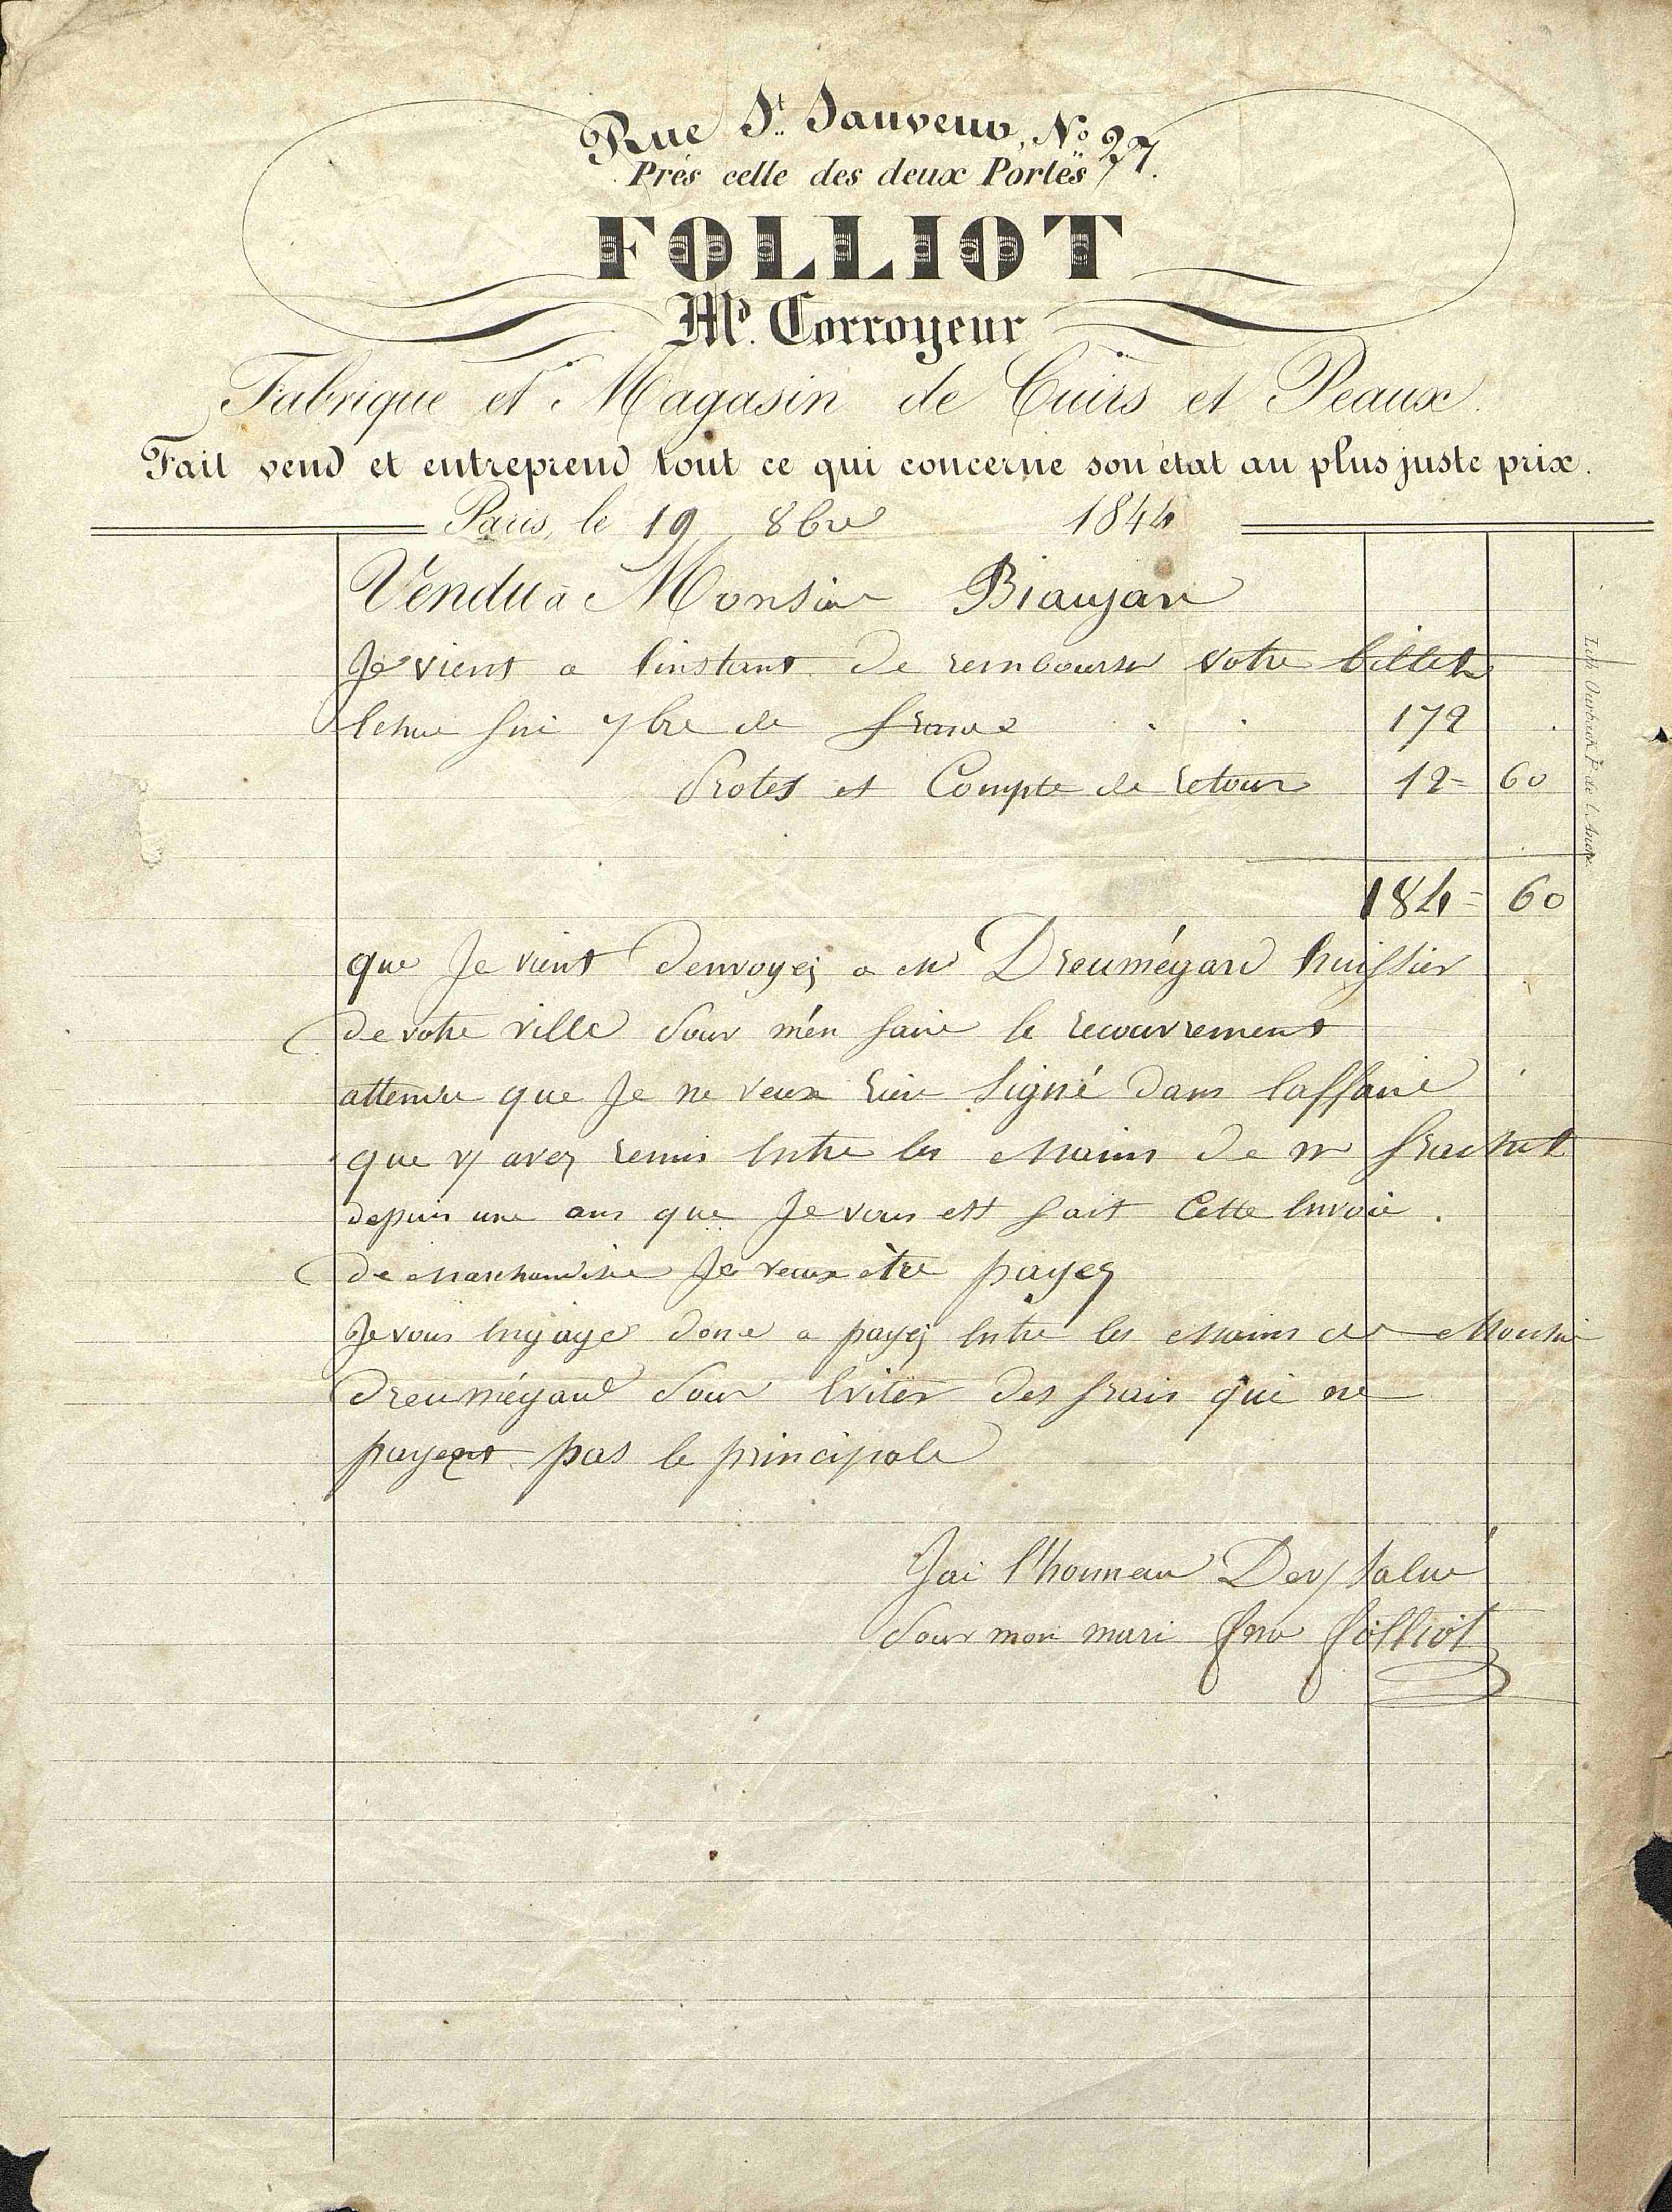 Rue St. Sauveur, No. 27.
Prés celle des deux Portes
FOLLIOT
Md. Corroyeur
Fabrique et Magasin de Cuirs et Peaux.
Fait vend et entreprend tout ce qui concerne son état au plus juste prix.
Paris, le 19 8bre 1844
Vendu à Monsieur Biaujan
Je vient a linstant de rembourser votre billet
Echue fin 7bre de francs 172
Protes et Compte de retour 12= 60
184= 60
que Je vient denvoyez a Mr Dreumégard huissier
de votre ville Pour m'en faire le recouvrement
attendu que Je ne veux rien Signé dans laffaire
que vs avez remis Entre les Mains de mr frachet
depuis une ans que Je vous est fait Cette Envoie.
de Marchandise Je veux être payez
Je vous Engage donc a payez Entre les Mains de Monsieur
Dreumégard Pour Eviter des frais qui ne
payent pas le principale
Jai l'honneur De vs salué
Pour mon mari fme folliot